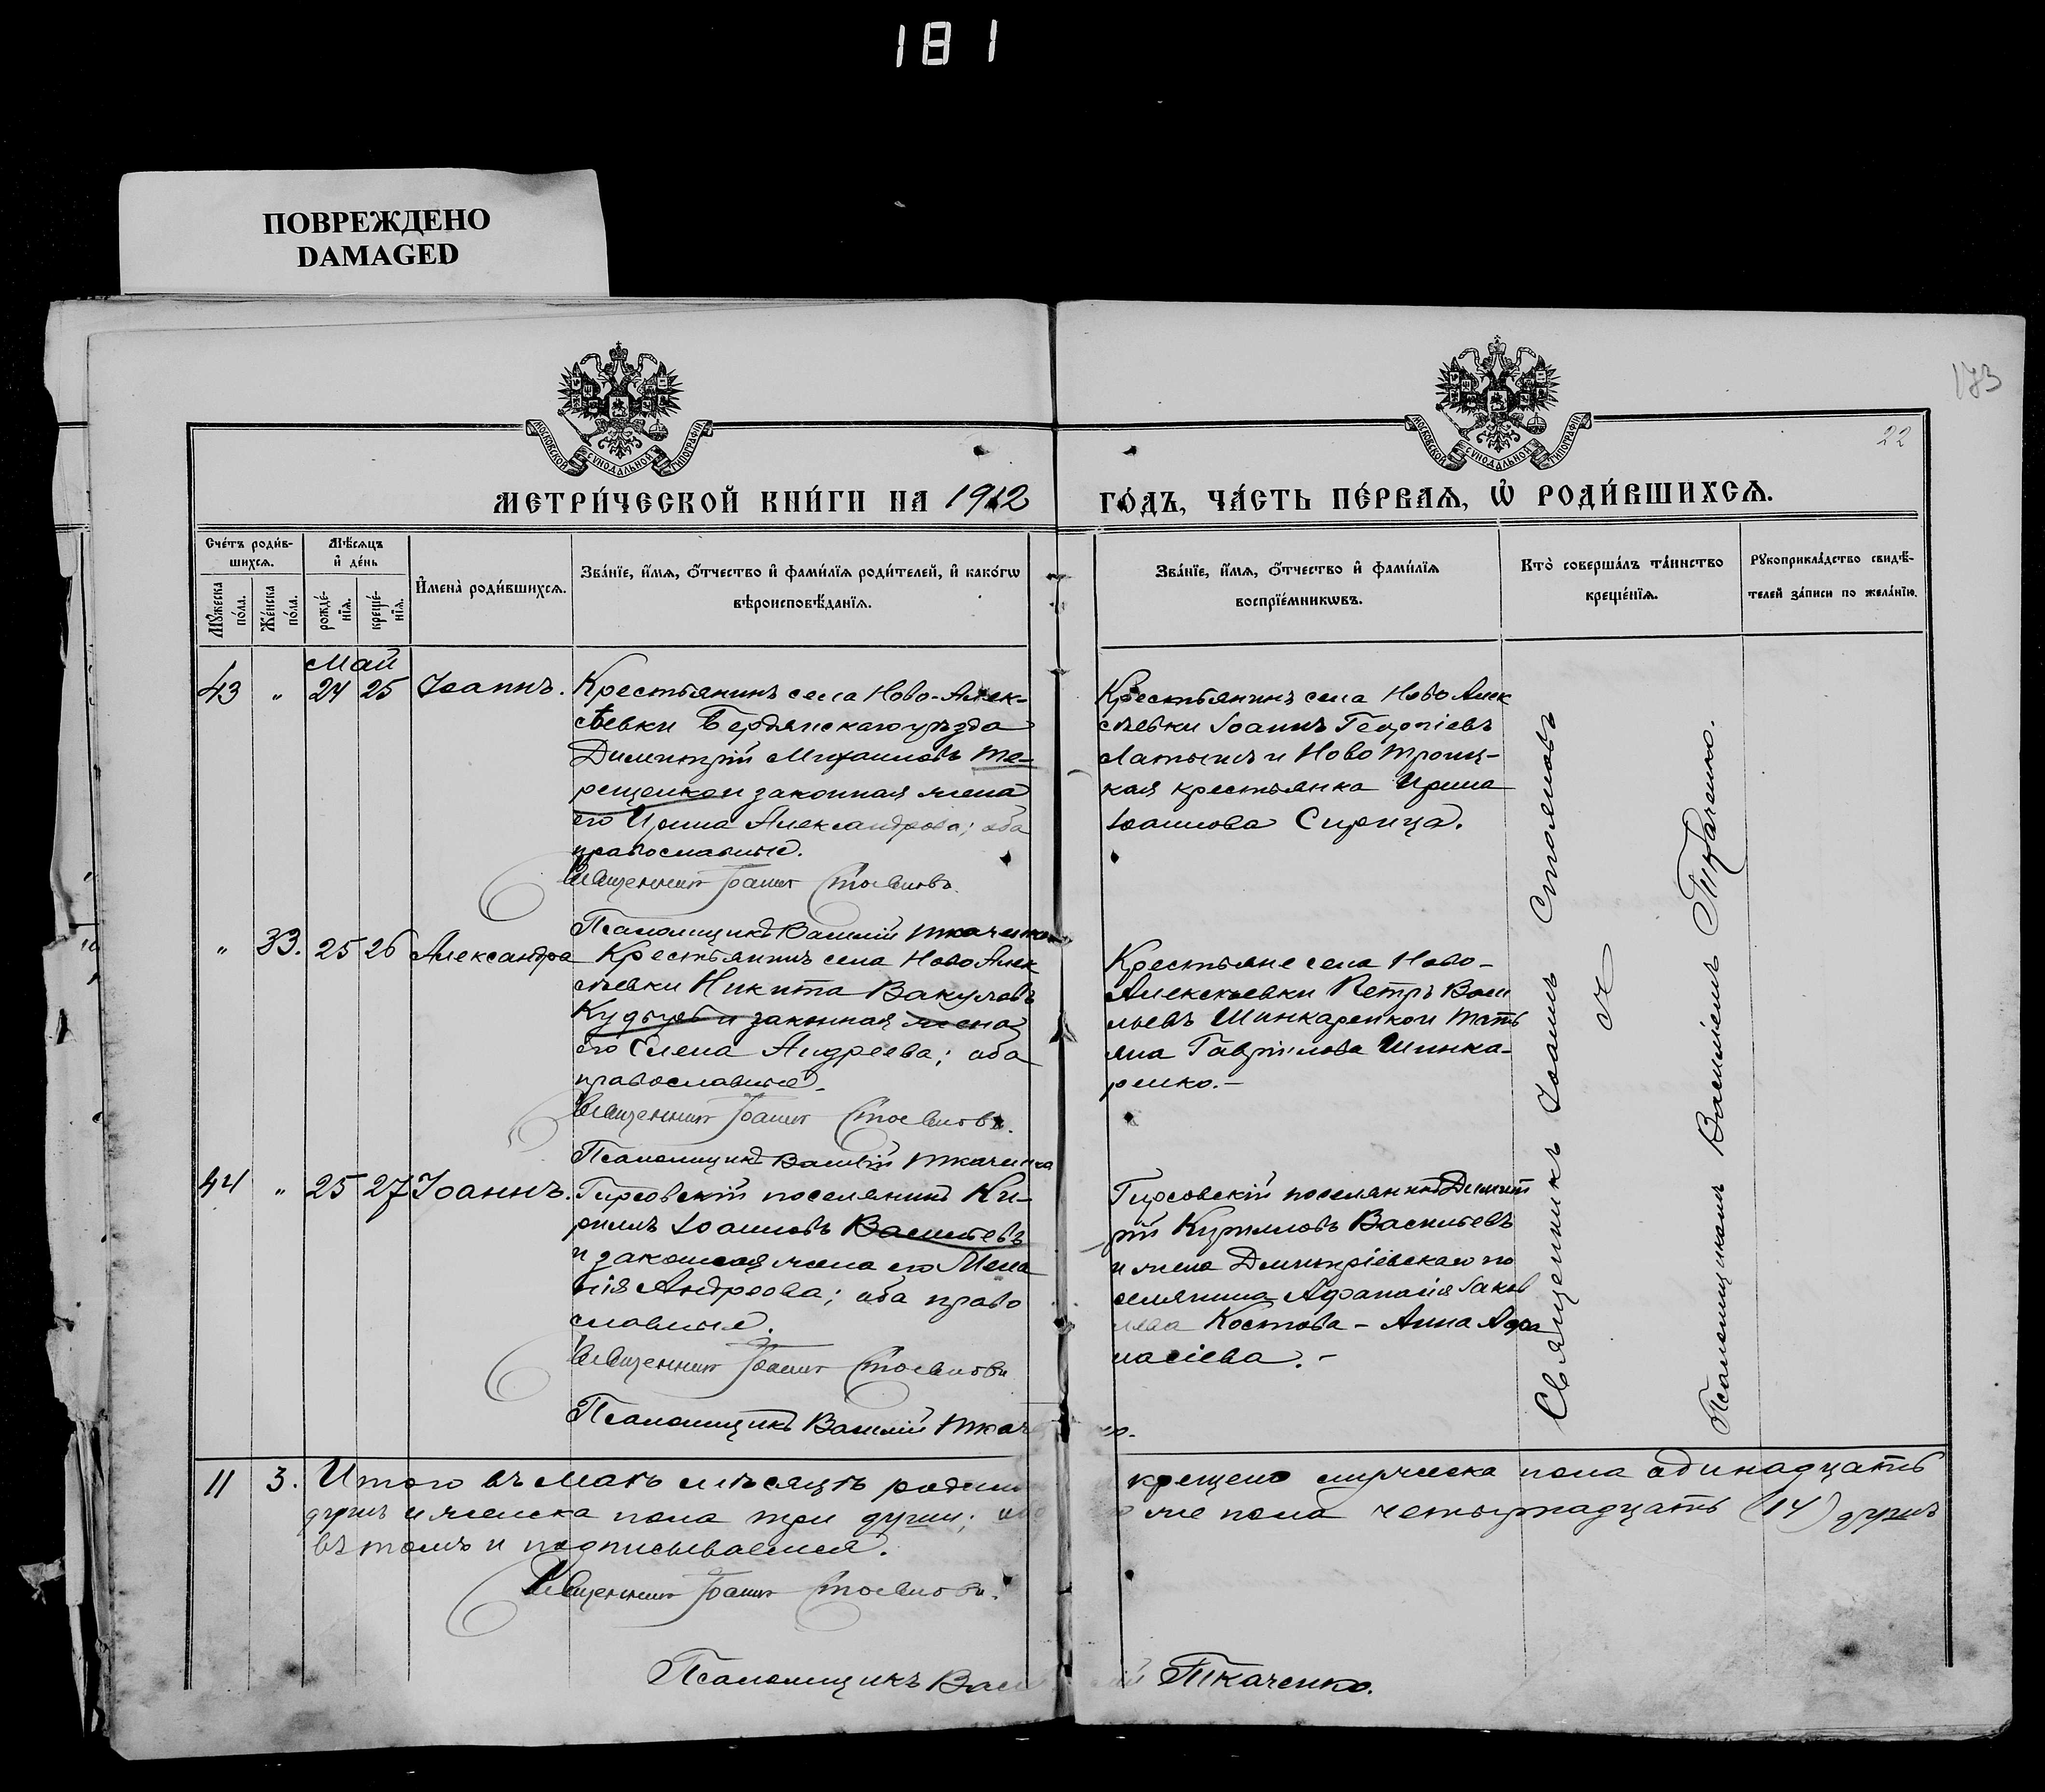 181
ПОВРЕЖДЕНО
DAMAGED
173
22
МОСКОВСКОЙ СѴНОДАЛЬНОЙ ТИПОГРАФІИ
МОСКОВСКОЙ СѴНОДАЛЬНОЙ ТИПОГРАФІИ
МЕТРИ́ЧЕСКОЙ КНИ́ГИ НА 1912
ГО́ДЪ, ЧА́СТЬ ПЕ́РВАѦ, Ѽ РОДИ́ВШИХСѦ.
Сче́тъ роди́в-
шихсѧ.
Мѣ́сѧцъ
и҆ де́нь
Мꙋ́жеска
по́ла.
Же́нска
по́ла.
рожде́-
нїѧ.
креще́-
нїѧ.
И҆мена̀ роди́вшихсѧ.
Зва́нїе, и҆́мѧ, ѻ҆́тчество и҆ фами́лїѧ роди́телей, и҆ како́гѡ
вѣроисповѣ́данїѧ.
Зва́нїе, и҆́мѧ, ѻ҆́тчество и҆ фами́лїѧ
воспрїе́мникѡвъ.
Кто̀ соверша́лъ та́инство
креще́нїѧ.
Рꙋкоприкла́дство свидѣ́-
телей за́писи по жела́нїю.
Май
43 " 24 25 Іоаннъ.
Крестьянинъ села Ново-Алек-
сѣевки Бердянскаго уѣзда
Димитрій Михаиловъ Те-
рещенко и законная жена
его Ирина Александрова; оба
православные.
Священникъ Іоаннъ Стояновъ.
Псаломщикъ Василій Ткаченко
Крестьянинъ села Ново Алек
сѣевки Іоаннъ Георгіевъ
Латышъ и Ново Троиц-
кая крестьянка Ирина
Іоаннова Сирица.
" 33. 25 26 Александра
Крестьянинъ села Ново Алек
сѣевки Никита Вакуловъ
и законная жена
его Елена Андреева; оба
православные.
Священникъ Іоаннъ Стояновъ.
Псаломщикъ Василій Ткаченко
Крестьяне села Ново-
Алексѣевки Петръ Васи
льевъ Шинкаренко и Тать
яна Гавріилова Шинка-
ренко.-
44 " 25 27 Іоаннъ.
Гирсовскій поселянинъ Ки-
риллъ Іоанновъ Васильевъ
и законная жена его Мела
нія Андреева; оба право
славные.
Священникъ Іоаннъ Стояновъ
Псаломщикъ Василій Ткач
о.
Гирсовскій поселянинъ Димит
рій Кирилловъ Васильевъ
и жена Димитріевскаго по
селянина Афанасія Іаков
лева Костова - Анна Афа
насіева.-
Священникъ Іоаннъ Стояновъ
и
Псаломщикомъ Василіемъ Ткаченко.
11 3. Итого въ Маѣ мѣсяцѣ родили
крещено мужеска пола одинадцать
душъ и женска пола три души; обо
его же пола четырнадцать (14) душъ
въ томъ и подписываемся.
Священникъ Іоаннъ Стояновъ.
Псаломщикъ Васи
лій Ткаченко.